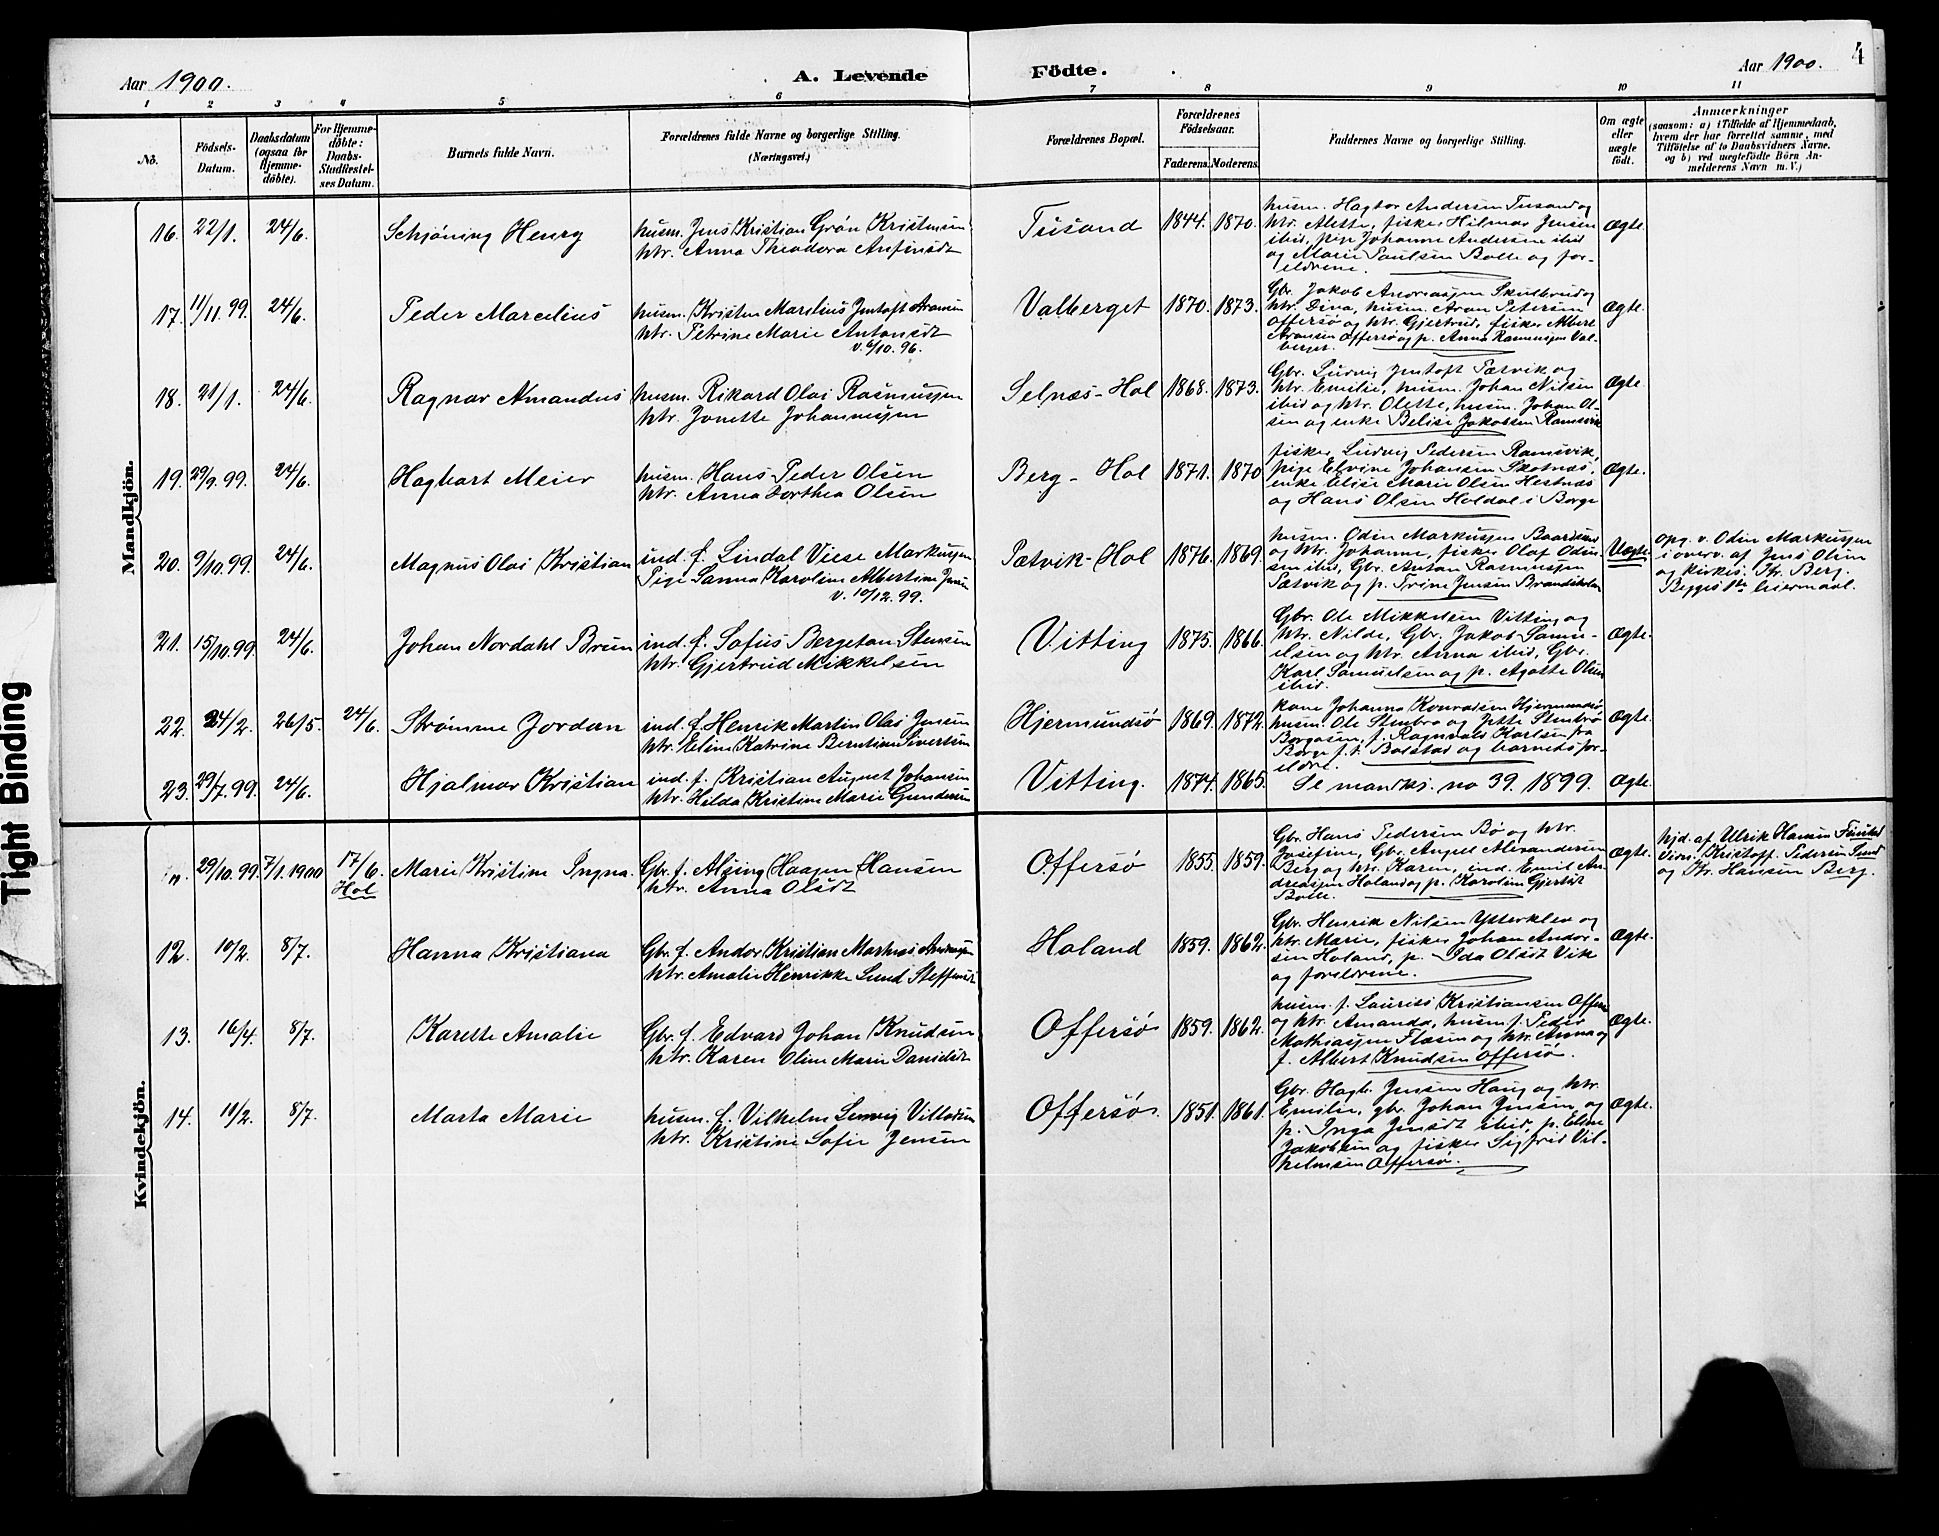 Aar 1900.
A. Levende Födte.
Aar 1900.
4
1 2 3 4 5 6 7 8 9 10 11
No.
Födsels-
Datum.
Daabsdatum
(ogsaa for
Hjemme-
döbte).
For Hjemme-
döbte:
Daabs-
Stadfæstel-
ses Datum.
Barnets fulde Navn.
Forældrenes fulde Navne og borgerlige Stilling.
(Næringsvei.)
Forældrenes Bopæl.
Forældrenes
Födselsaar.
Faderens. Moderens.
Faddernes Navne og borgerlige Stilling.
Om ægte
eller
uægte
födt.
Anmærkninger
(saasom: a) i Tilfælde af Hjemmedaab,
hvem der har forrettet samme, med
Tilföielse af to Daabsvidners Navne,
og b) ved uægtefödte Börn An-
melderens Navn m.V.)
Mandkjön.
16. 22/1. 24/6. Schjöning Henry
husm. Jens Kristian Grön Kristensen
htr. Anna Theodora Anfinsdt
Tusand 1844. 1870.
husm. Hagbar Andersen Tusand og
htr. Alette, fisker Hilmar Jensen
ibid, pige Johanne Andersen ibid
og Marie Paulsen Bolle og for-
eldrene.
Ægte.
17. 11/11.99. 24/6. Peder Marcelius
husm. Kristen Marelius Jentoft Aronsen
htr. Petrine Marie Antonsdt
v. 6/10.96.
Valberget 1870. 1873.
Gbr. Jakob Andreassen Skulbrud og
htr. Dina, husm. Aron Petersen
Offersö og htr. Gjertrud, fisker Albert
Aronsen Offersö og p. Anna Rasmussen Val-
berget.
Ægte.
18. 21/1. 24/6. Ragnar Amandus
husm. Rikard Olai Rasmussen
htr. Jonette Johannessen
Selnæs-Hol 1868. 1873.
Gbr. Ludvig Jentoft Petvik og
htr. Emilie, husm. Johan Nilsen
ibid og htr. Olette, husm. Johan Ol-
sen og enke Belise Jakobsen Ramsvik
Ægte.
19. 29/9.99. 24/6. Hagbart Meier
husm. Hans Peder Olsen
htr. Anna Dorthea Olsen
Berg - Hol 1871. 1870
fisker Ludvig Pedersen Ramsvik,
pige Elvine Johansen Skotnes,
enke Elise Marie Olsen Hestnes
og Hans Olsen Holdal i Borge
Ægte.
20. 9/10.99. 24/6. Magnus Olai Kristian
ind. f. Lindal Viese Markussen
Pige Sanna Karoline Albertine Jensen
v. 10/12.99.
Petvik-Hol 1876. 1869.
husm. Odin Markussen Baardsund
og htr. Johanne, fisker Olaf Odin-
sen ibid, Gbr. Anton Rasmussen
Petvik og p. Trine Jensen Brandsholm
Uægte.
opg. v. Odin Markussen
i overv. af Jens Olsen
og kirkes. Kr. Berg.
Begges 1ste leiermaal.
21. 15/10.99. 24/6. Johan Nordahl Brun
ind. f. Sofus Bergetan Stensen
htr. Gjertrud Mikkelsen
Vitting 1875. 1866.
Gbr. Ole Mikkelsen Vitting og
htr. Nilde, Gbr. Jakob Samu-
elsen og htr. Anna ibid, Gbr.
Karl Samuelsen og p. Agathe Olsen
ibid.
Ægte.
22. 24/2. 26/5. 24/6. Strömme Jordan
ind. f. Henrik Martin Olai Jensen
htr. Eline Katrine Berntine Sivertsen
Hjermundsö 1869. 1872.
kone Johanna Konradsen Hjermundsö,
husm. Ole Stenbro og Jette Stenbro
Borgåsen, f. Ragnvald Karlsen fra
Borge p. t. Bolstad og barnets for-
eldre.
Ægte.
23. 29/7.99. 24/6. Hjalmar Kristian
ind. f. Kristian August Johansen
htr. Hilda Kristine Marie Gundersen
Vitting. 1874. 1865.
Se mandkj. no 39. 1899.
Ægte.
Kvindekjön.
29/10.99. 7/1.1900 17/6. Hol Marie Kristine Ingna.
Gbr. f. Alsing Haagen Hansen
htr. Anna Olsdt
Offersö 1855. 1859.
Gbr. Hans Pedersen Bö og htr.
Josefine, Gbr. Angel Alexandersen
Berg og htr. Karen, ind. Emil An-
dreassen Holand og p. Karoline Gjertsdt
Bolle.
Ægte.
hjd. af Ulrik Hansen
Vidn. Kristoff. Pedersen Sund
og Kr. Hansen Berg.
12. 10/2. 8/7. Hanna Kristiana
Gbr. f. Andor Kristian Mathias Andreassen
htr. Amalie Henrikke Lund Steffensdt
Holand 1859. 1862.
Gbr. Henrik Nilsen Ytterklev og
htr. Marie, fisker Johan Andor-
sen Holand, p. Ida Olsdt Vik
og foreldrene.
Ægte.
13. 16/4. 8/7. Karette Amalie
Gbr. f. Edvard Johan Knudsen
htr. Karen Oline Marie Danielsdt
Offersö 1859. 1862.
husm. f. Laurits Kristiansen Offersö
og htr. Amanda, husm. f. Peder
Mathiassen Flæsen og htr. Anna og
f. Albert Knudsen Offersö.
Ægte.
14. 11/2. 8/7. Marta Marie
husm. f. Vilhelm Ludvig Villadsen
htr. Kristine Sofie Jensen
Offersö. 1851. 1861.
Gbr. Hagb. Jensen Haug og htr.
Emilie, gbr. Johan Jensen og
p. Inga Jensdt ibid, p. Eline
Jakobsen og fisker Sigfrid Vil-
helmsen Offersö.
Ægte.
Tight Binding